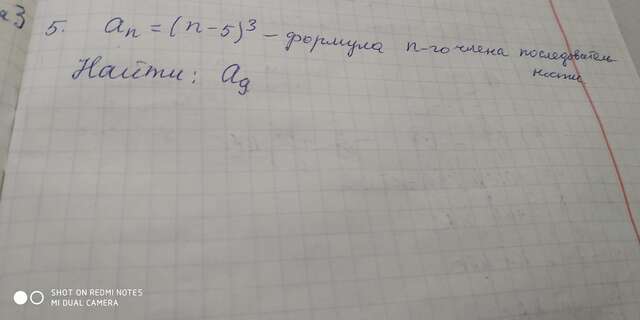 а3
5. aₙ = (n-5)³ - формула n-го члена последователь-
ности
Найти: a₉
SHOT ON REDMI NOTE5
MI DUAL CAMERA